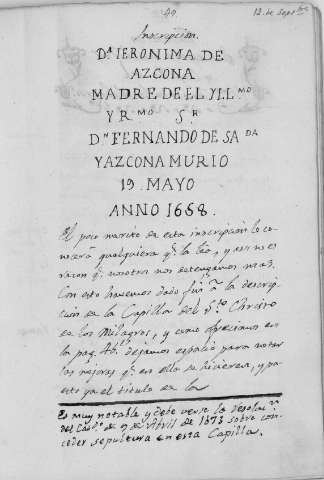 49.
12. de Sepbre
Inscripcion.
Dª IERONIMA DE
AZCONA
MADRE DE EL YLLmo
Y Rmo Sr
Dn FERNANDO DE SADA
Y AZCONA MURIO
19. MAYO
ANNO 1668.
El poco merito de esta inscripcion lo co-
nocerá qualquiera qe la lea, y assi no es
razon qe nosotros nos detengamos mas.
Con esto havemos dado fin a la descrip-
cion de la Capilla del Sto Christo
de los Milagros, y como ofrecimos en
la pag. dejamos espacio para notar
las mejoras qe en ella se hicieren, y pa
esto va el titulo en la
Es muy notable y debe verse la resolun
del Cavdo de 9 de Abril de 1673 sobre con-
ceder sepultura en esta Capilla.